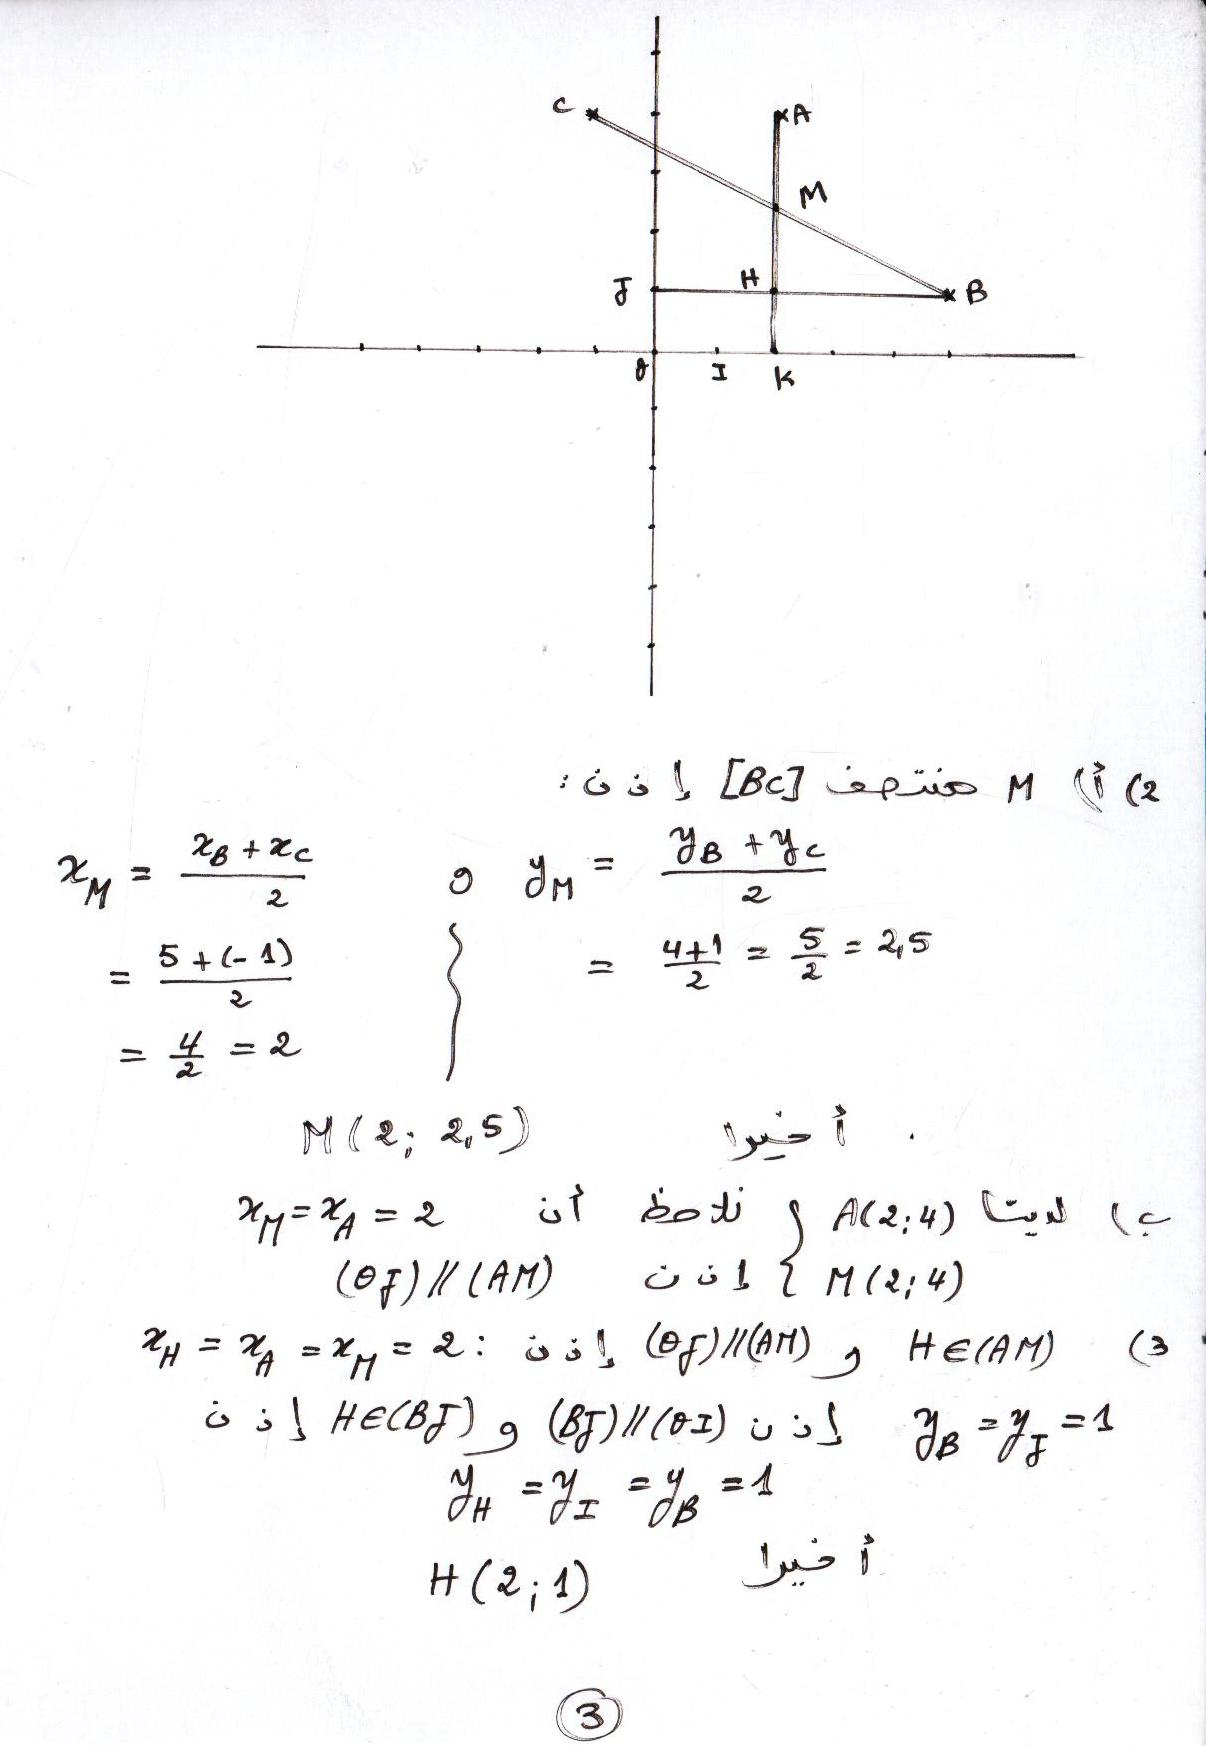 C
A
M
J H B
O I K
2) أ) M منتصف [BC] إذن :
x_M = \frac{x_B + x_C}{2} و y_M = \frac{y_B + y_C}{2}
= \frac{5 + (-1)}{2} = \frac{4+1}{2} = \frac{5}{2} = 2,5
= \frac{4}{2} = 2
أخيرا M(2; 2,5)
ب) لدينا A(2;4) نلاحظ أن x_M = x_A = 2
M(2;4) إذن (OJ) // (AM)
3) H∈(AM) و (OJ)//(AM) إذن : x_H = x_A = x_M = 2
y_B = y_J = 1 إذن (BJ)//(OI) و H∈(BJ) إذن
y_H = y_I = y_B = 1
أخيرا H(2;1)
3